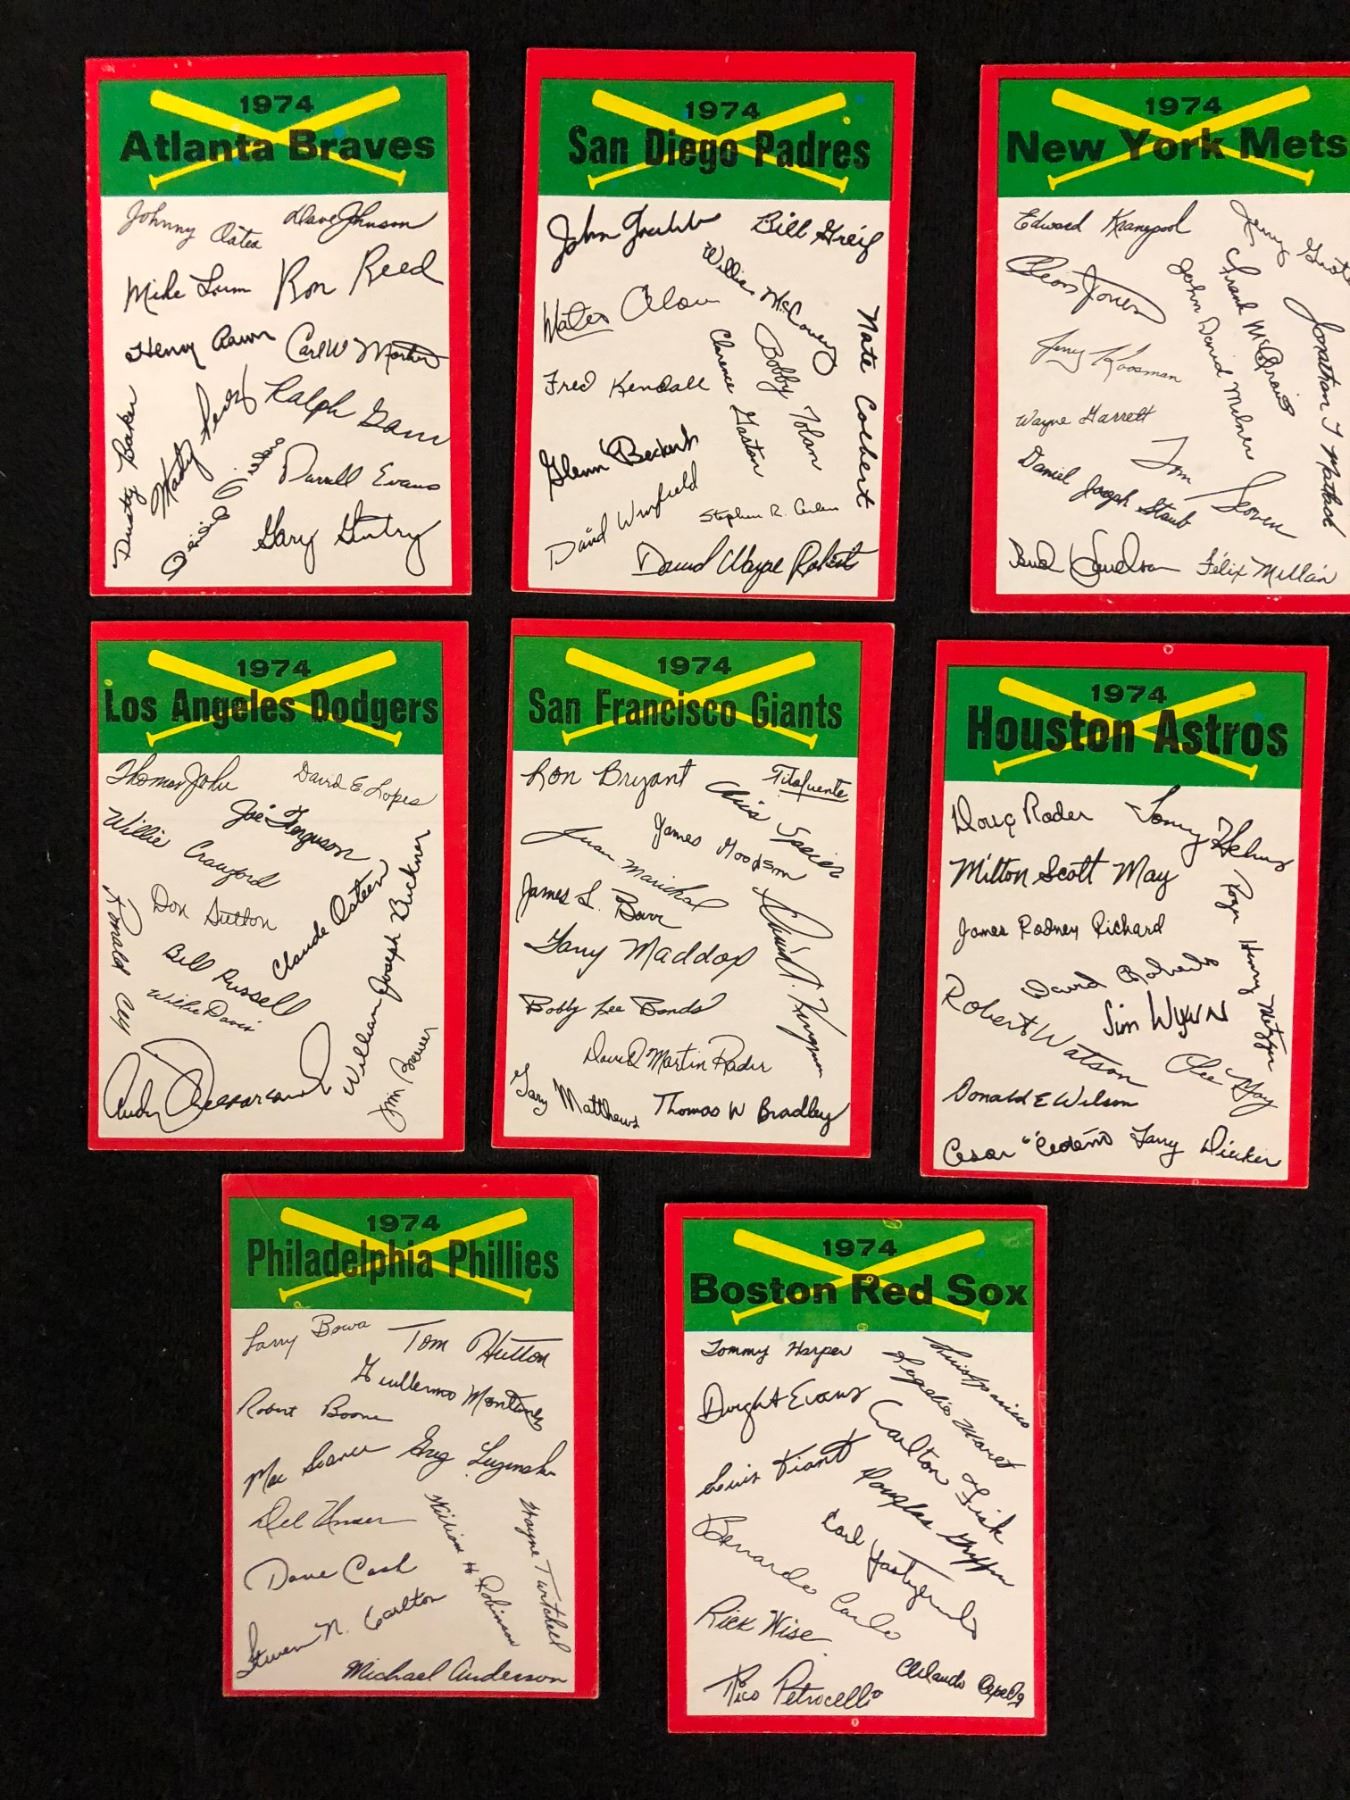 1974
Atlanta Braves
Johnny Oates
Dave Johnson
Mike Lum
Ron Reed
Henry Aaron
Carl W Morton
Dusty Baker
Marty Perez
Ralph Garr
Darrell Evans
Gary Gentry
1974
San Diego Padres
John Grubb
Bill Greif
Willie McCovey
Nate Colbert
Fred Kendall
Clarence Gaston
Bobby Tolan
Glenn Beckert
David Winfield
Stephen R. Arlin
David Wayne Roberts
1974
New York Mets
Edward Kranepool
Jerry Grote
Cleon Jones
Frank McGraw
John David Milner
Jonathan T Matlack
Jerry Koosman
Wayne Garrett
Daniel Joseph Staub
Tom Seaver
Bud Harrelson
Félix Millán
1974
Los Angeles Dodgers
Thomas John
David E Lopes
Willie Crawford
Joe Ferguson
Don Sutton
Claude Osteen
William Joseph Buckner
Ronald Cey
Bill Russell
Willie Davis
Andy Messersmith
Jim Brewer
1974
San Francisco Giants
Ron Bryant
Chris Speier
Tito Fuentes
Juan Marichal
James Goodson
James L. Barr
David A. Kingman
Garry Maddox
Bobby Lee Bonds
David Martin Rader
Gary Matthews
Thomas W Bradley
1974
Houston Astros
Doug Rader
Tommy Helms
Milton Scott May
Roger Henry Metzger
James Rodney Richard
David Roberts
Robert Watson
Jim Wynn
Lee May
Donald E Wilson
Cesar "Cedeño
Larry Dierker
1974
Philadelphia Phillies
Larry Bowa
Tom Hutton
Guillermo Montanez
Robert Boone
Mac Scarce
Greg Luzinski
Del Unser
William H Robinson
Wayne Twitchell
Dave Cash
Steven N. Carlton
Michael Anderson
1974
Boston Red Sox
Tommy Harper
Luis Aparicio
Rogelio Moret
Dwight Evans
Carlton Fisk
Luis Tiant
Douglas Griffin
Bernardo Carbo
Carl Yastrzemski
Rick Wise
Rico Petrocelli
Orlando Cepeda